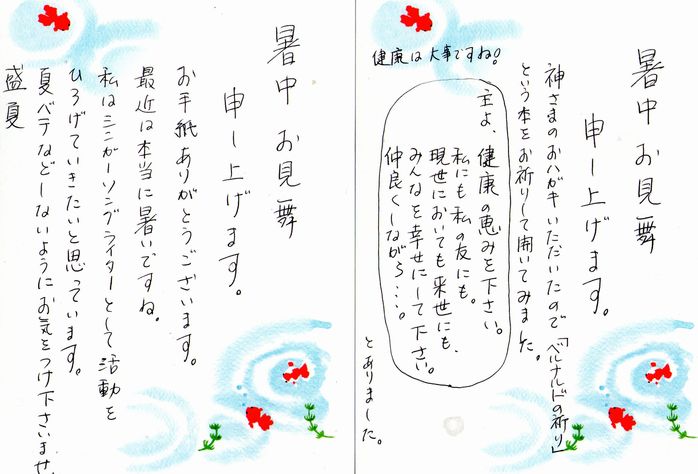 暑中お見舞
申し上げます。
神さまのおハガキいただいたので「ベルナルドの祈り」
という本をお祈りして開いてみました。
健康は大事ですね。
主よ、健康の恵みを下さい。
私にも私の友にも。
現世においても来世にも、
みんなを幸せにして下さい。
仲良くしながら・・・。
とありました。
暑中お見舞
申し上げます。
お手紙ありがとうございます。
最近は本当に暑いですね。
私はシンガーソングライターとして活動を
ひろげていきたいと思っています。
夏バテなどしないようにお気をつけ下さいませ。
盛夏